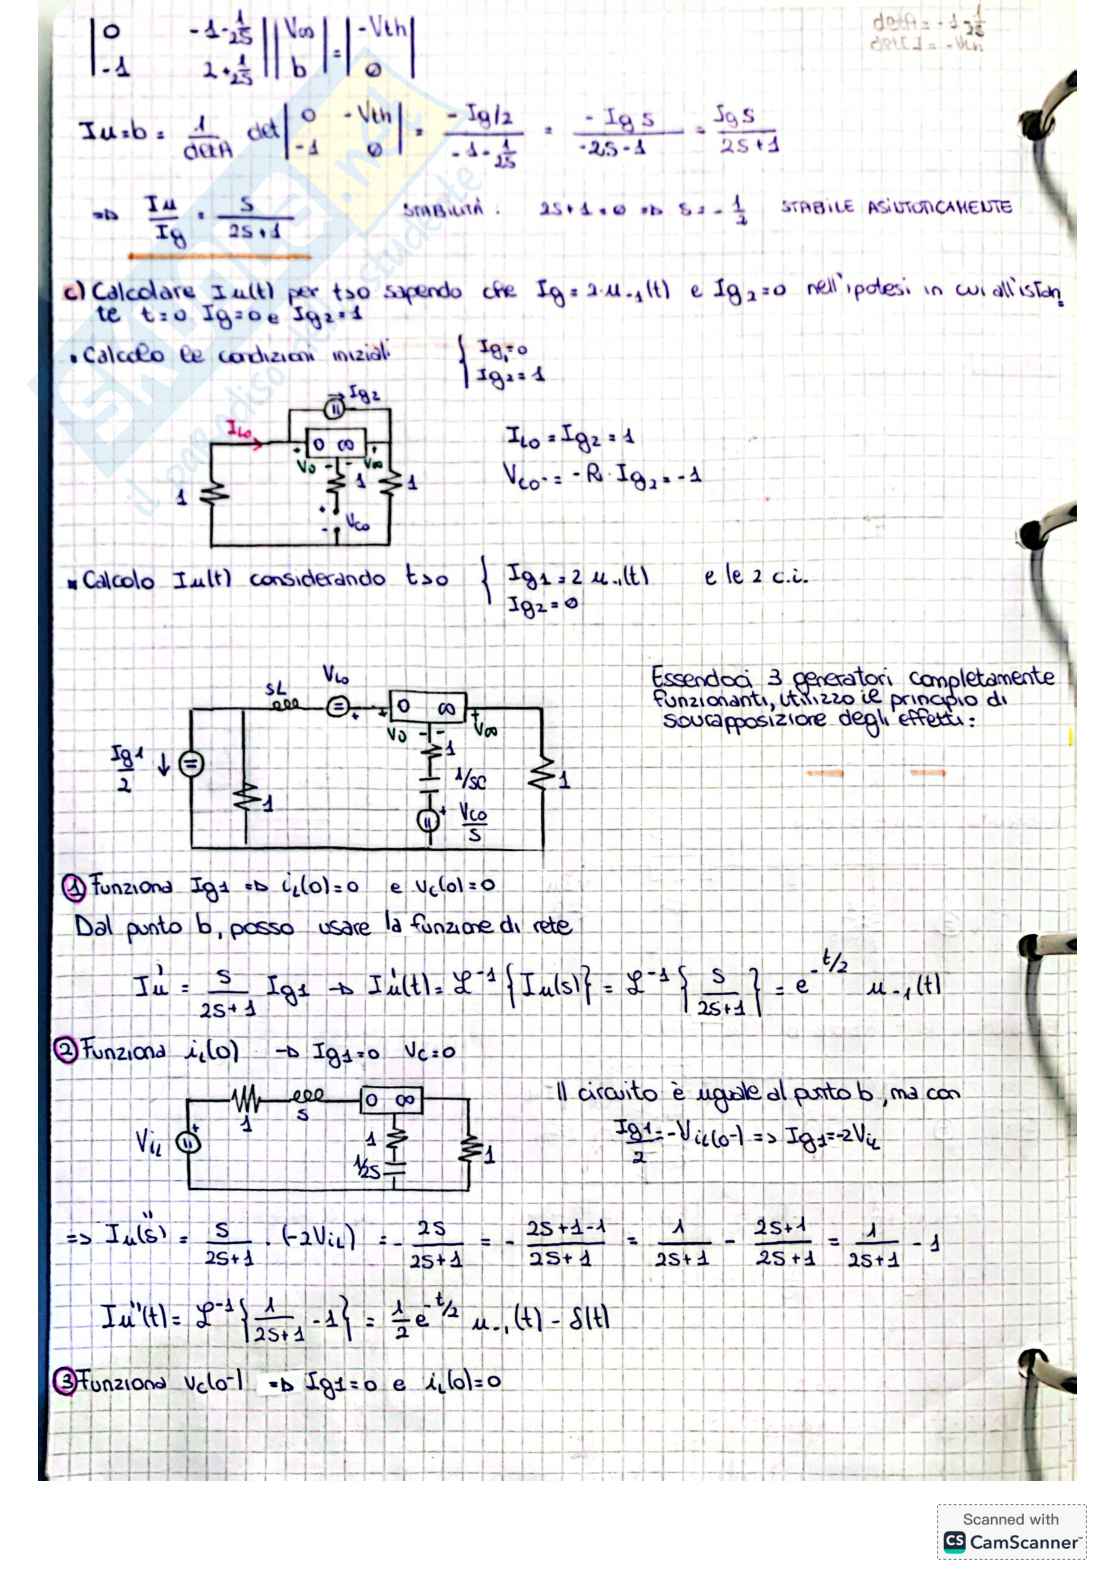 |0 -1-1/2S| |V∞| = |-Vth|
|-1 2+1/2S| |b| |0|
detA = -1-1/2S
det[] = -Vth
Iu=b= 1/detA det |0 -Vth; -1 0| = (-Ig/2)/(-1-1/2S) = (-Ig S)/(-2S-1) = (Ig S)/(2S+1)
=> Iu/Ig = S/(2S+1) STABILITÀ: 2S+1=0 => S=-1/2 STABILE ASINTOTICAMENTE
c) Calcolare Iu(t) per t>0 sapendo che Ig=2·u-1(t) e Ig2=0 nell'ipotesi in cui all'istan
te t=0 Ig=0 e Ig2=1
• Calcolo le condizioni iniziali { Ig1=0
Ig2=1
Ig2
IL0 0 ∞
V0 V∞
1 1 1
VC0
IL0 = Ig2 = 1
VC0- = -R·Ig2 = -1
• Calcolo Iu(t) considerando t>0 { Ig1=2 u-1(t) e le 2 c.i.
Ig2=0
VL0
SL 0 ∞
V0 V∞
Ig1/2 1 1 1
1/SC
VC0/S
Essendoci 3 generatori completamente
funzionanti, utilizzo il principio di
sovrapposizione degli effetti:
① Funziona Ig1 => iL(0)=0 e vC(0)=0
Dal punto b, posso usare la funzione di rete
Iu' = S/(2S+1) Ig1 → Iu'(t) = ℒ-1{Iu(s)} = ℒ-1{S/(2S+1)} = e-t/2 u-1(t)
② Funziona iL(0) → Ig1=0 VC=0
1 S 0 ∞
ViL 1 1/2S 1
Il circuito è uguale al punto b, ma con
Ig1/2=-ViL(0-) => Ig1=-2ViL
=> Iu''(s) = S/(2S+1) · (-2ViL) = -2S/(2S+1) = -(2S+1-1)/(2S+1) = 1/(2S+1) - (2S+1)/(2S+1) = 1/(2S+1) - 1
Iu''(t) = ℒ-1{1/(2S+1) - 1} = 1/2 e-t/2 u-1(t) - δ(t)
③ Funziona vC(0-) => Ig1=0 e iL(0)=0
SKUOLA.net
il paradiso dello studente
Scanned with
CS CamScanner